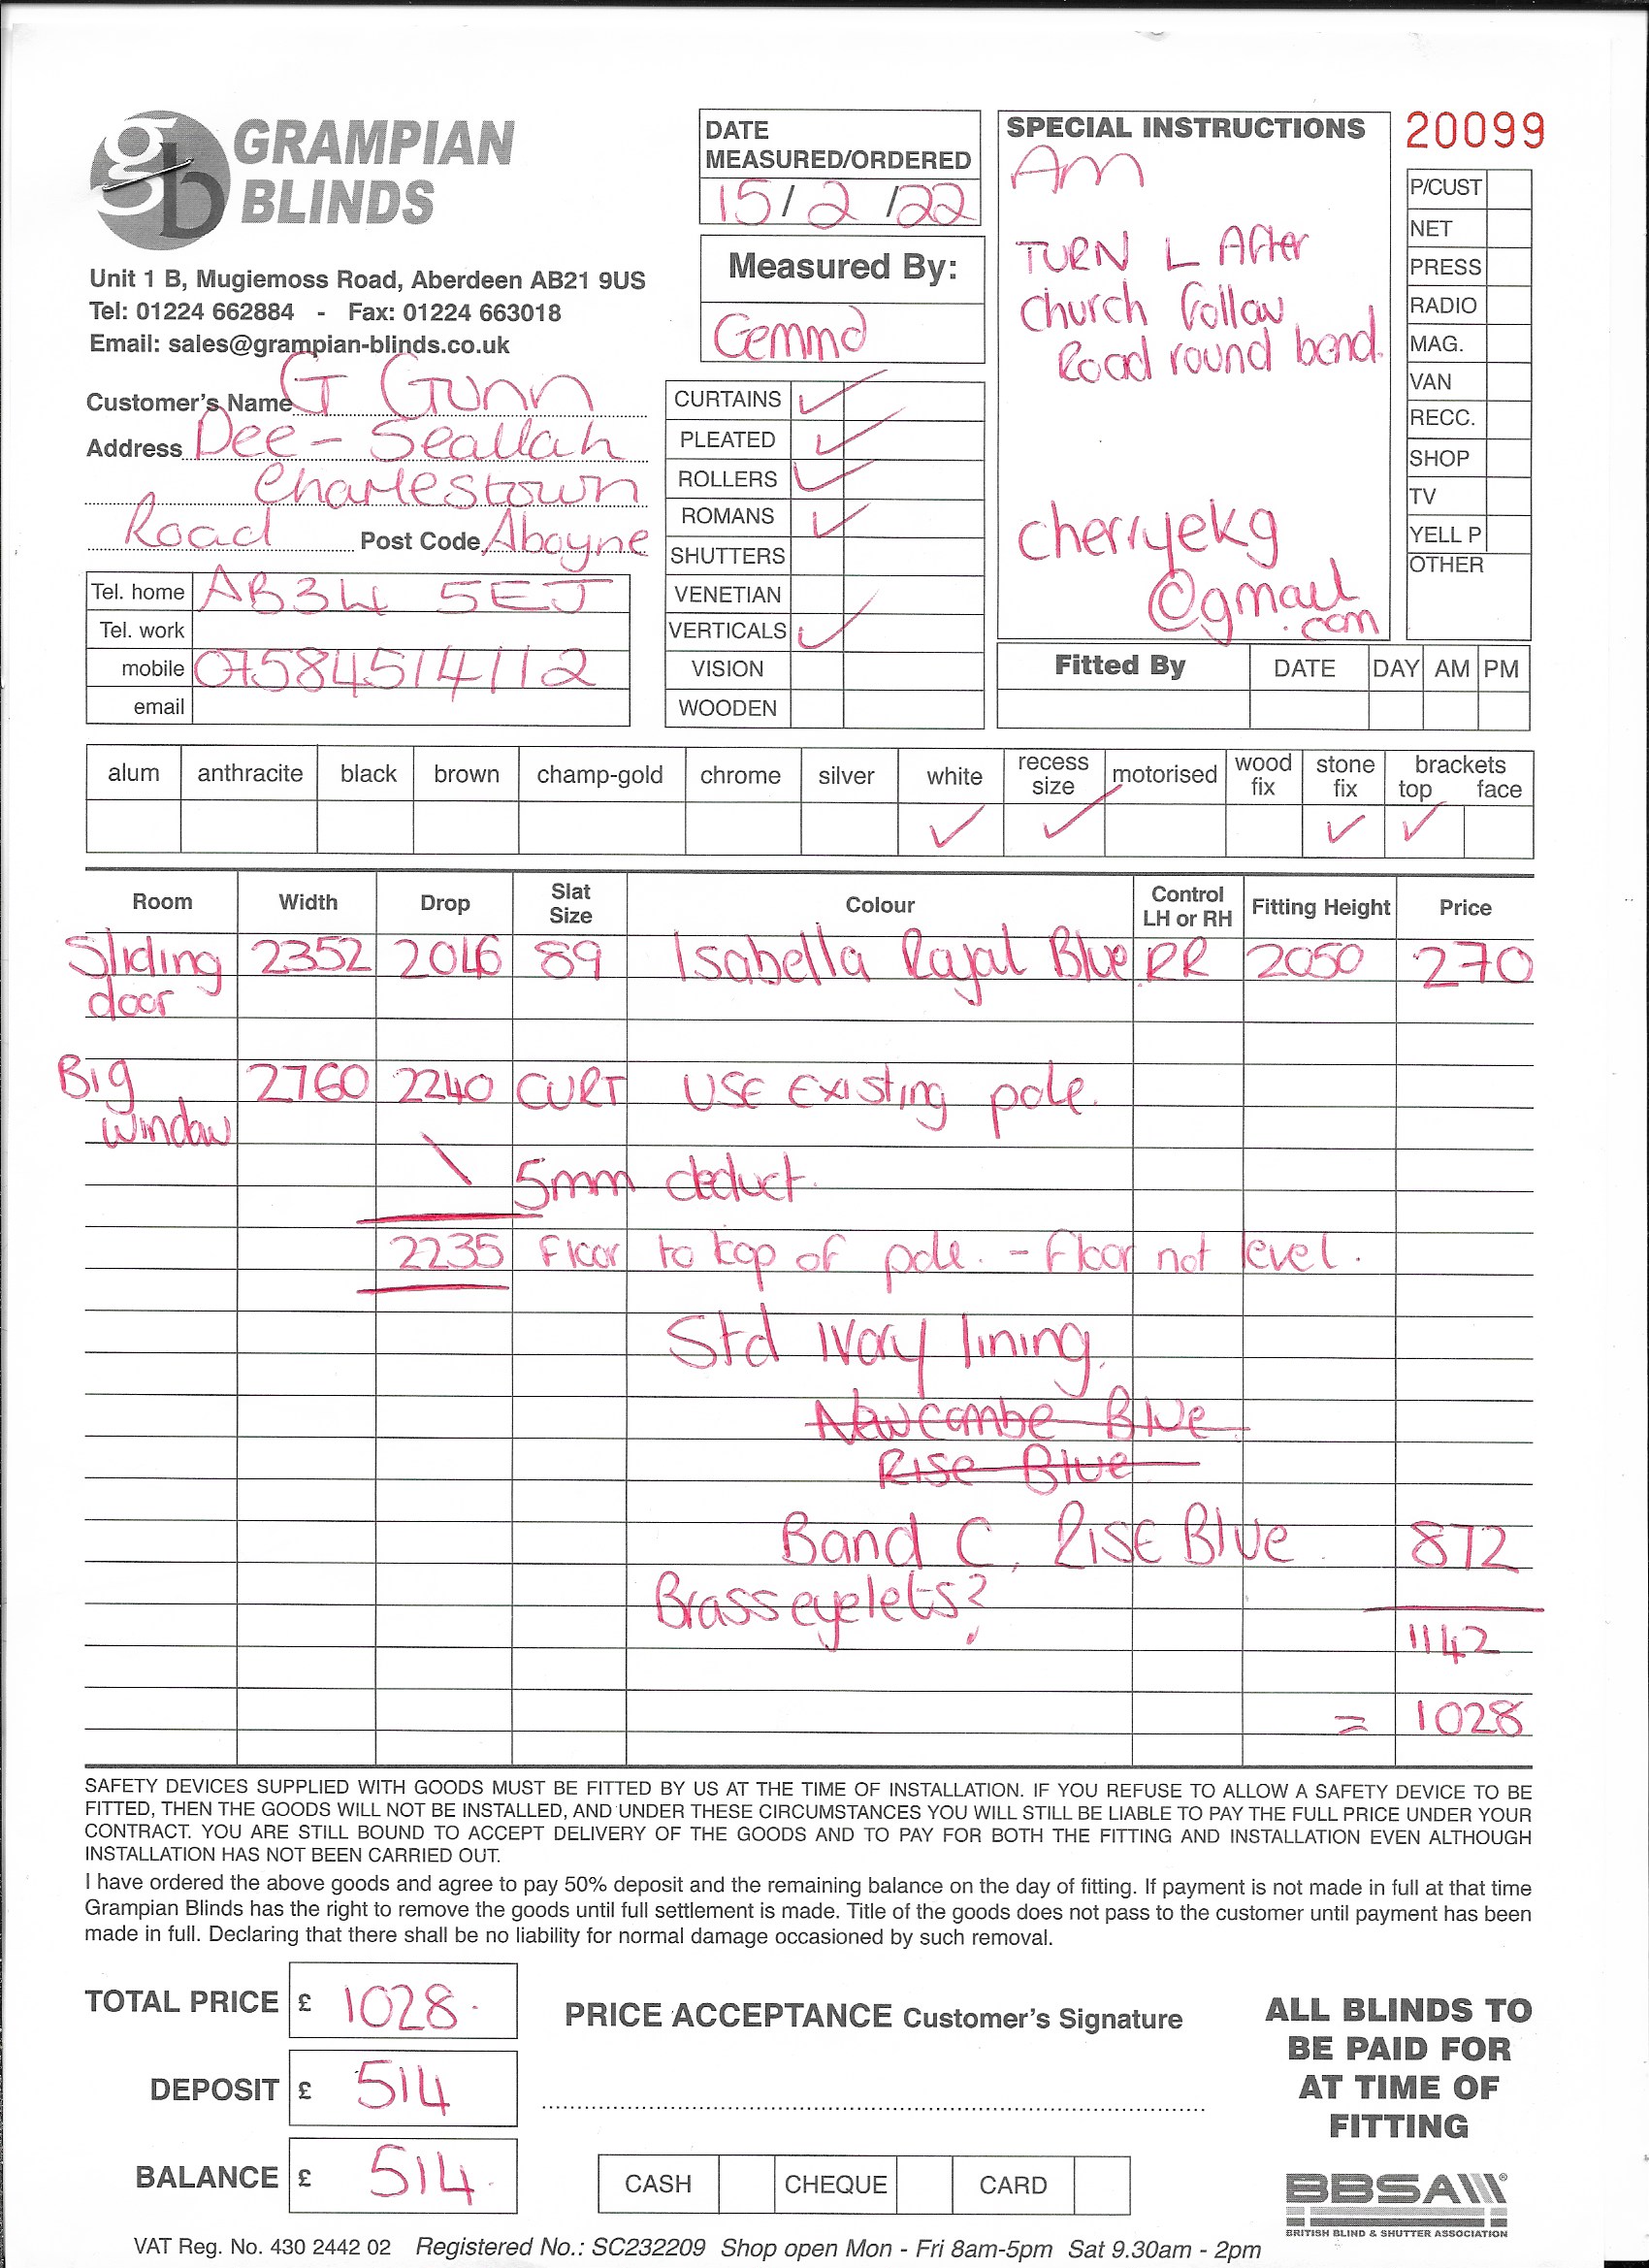 gb GRAMPIAN
BLINDS
Unit 1 B, Mugiemoss Road, Aberdeen AB21 9US
Tel: 01224 662884 - Fax: 01224 663018
Email: sales@grampian-blinds.co.uk
Customer's Name G Gunn
Address Dee - Seallah
Charlestown
Road Post Code Aboyne
Tel. home AB34 5EJ
Tel. work
mobile 07584514112
email
DATE
MEASURED/ORDERED
15/2/22
Measured By:
Gemma
CURTAINS ✓
PLEATED ✓
ROLLERS ✓
ROMANS ✓
SHUTTERS
VENETIAN
VERTICALS ✓
VISION
WOODEN
SPECIAL INSTRUCTIONS
Am
TURN L After
church follow
Road round bend.
cherryekg
@gmail
.com
20099
P/CUST
NET
PRESS
RADIO
MAG.
VAN
RECC.
SHOP
TV
YELL P
OTHER
Fitted By DATE DAY AM PM
alum anthracite black brown champ-gold chrome silver white recess size motorised wood fix stone fix brackets top face
✓ ✓ ✓ ✓
Room Width Drop Slat Size Colour Control LH or RH Fitting Height Price
Sliding 2352 2046 89 Isabella Royal Blue RR 2050 270
door
Big 2760 2240 CURT USE Existing pole.
window
\ 5mm deduct.
2235 Floor to top of pole. - Floor not level.
Std Ivory lining.
Newcombe Blue
Rise Blue
Band C, RISE Blue 872
Brass eyelets?
1142
= 1028
SAFETY DEVICES SUPPLIED WITH GOODS MUST BE FITTED BY US AT THE TIME OF INSTALLATION. IF YOU REFUSE TO ALLOW A SAFETY DEVICE TO BE
FITTED, THEN THE GOODS WILL NOT BE INSTALLED, AND UNDER THESE CIRCUMSTANCES YOU WILL STILL BE LIABLE TO PAY THE FULL PRICE UNDER YOUR
CONTRACT. YOU ARE STILL BOUND TO ACCEPT DELIVERY OF THE GOODS AND TO PAY FOR BOTH THE FITTING AND INSTALLATION EVEN ALTHOUGH
INSTALLATION HAS NOT BEEN CARRIED OUT.
I have ordered the above goods and agree to pay 50% deposit and the remaining balance on the day of fitting. If payment is not made in full at that time
Grampian Blinds has the right to remove the goods until full settlement is made. Title of the goods does not pass to the customer until payment has been
made in full. Declaring that there shall be no liability for normal damage occasioned by such removal.
TOTAL PRICE £ 1028.
DEPOSIT £ 514
BALANCE £ 514.
PRICE ACCEPTANCE Customer's Signature
CASH CHEQUE CARD
ALL BLINDS TO
BE PAID FOR
AT TIME OF
FITTING
BBSA®
BRITISH BLIND & SHUTTER ASSOCIATION
VAT Reg. No. 430 2442 02 Registered No.: SC232209 Shop open Mon - Fri 8am-5pm Sat 9.30am - 2pm